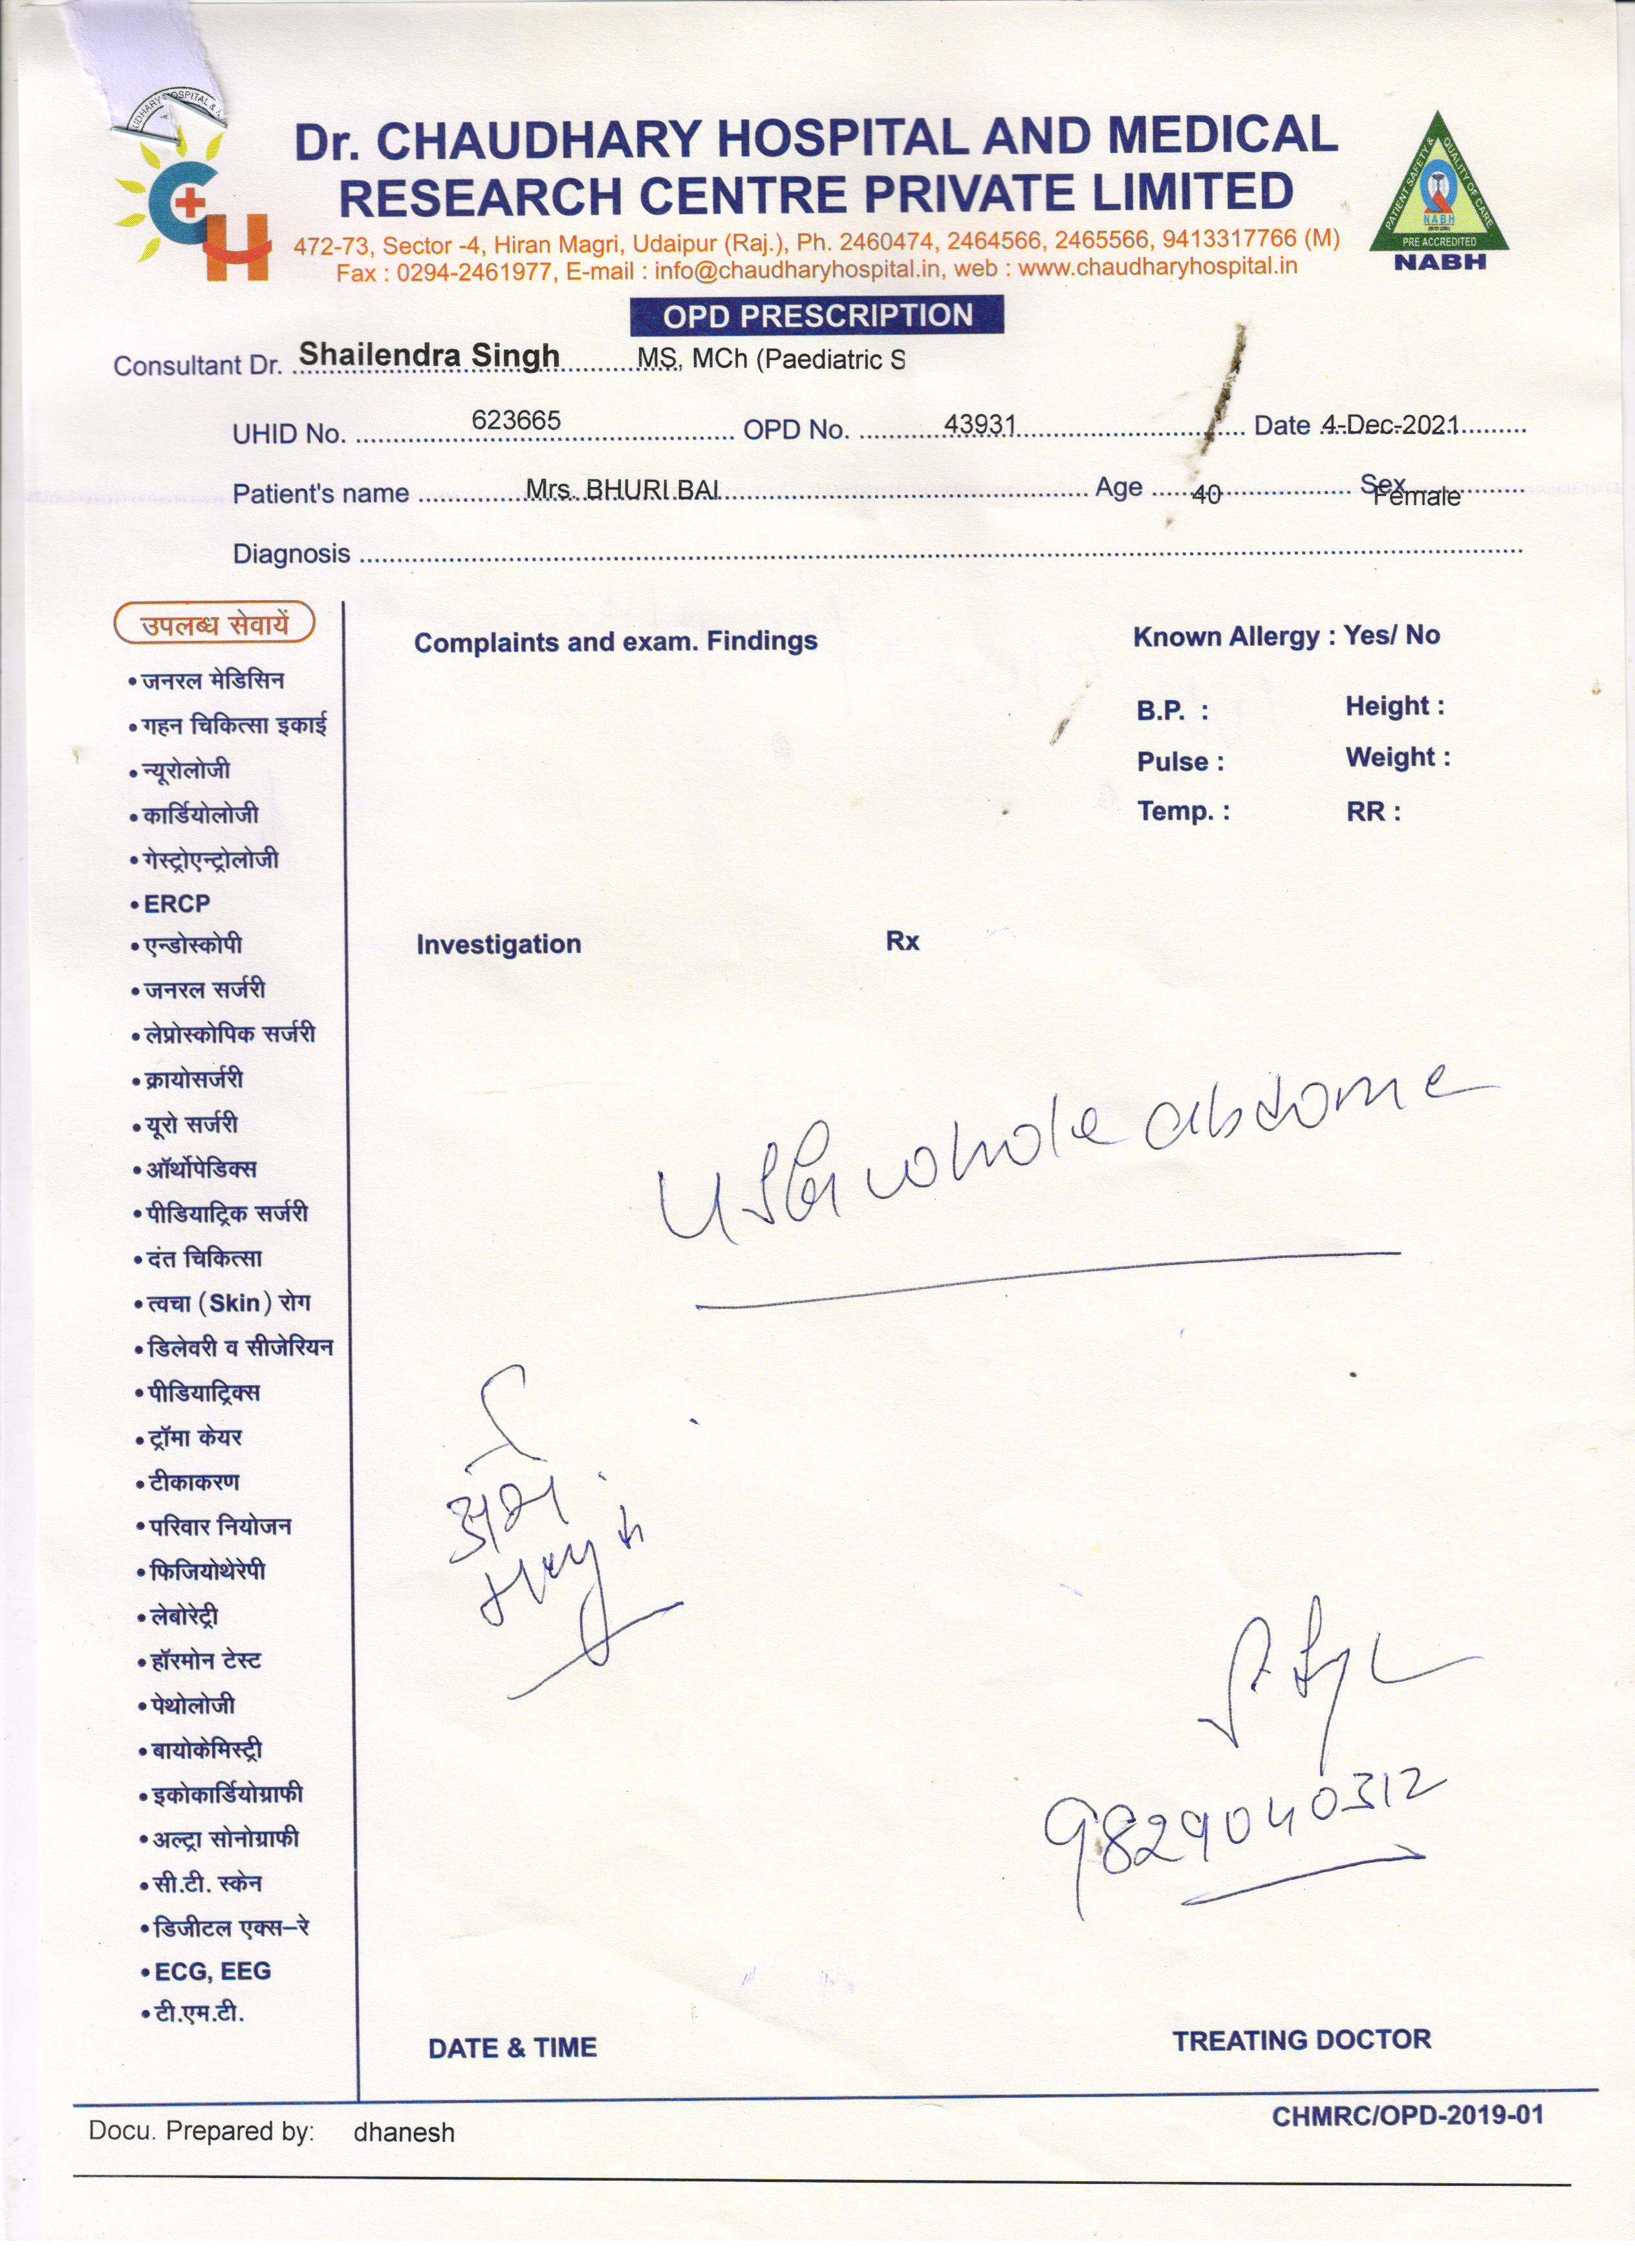 UDHARY HOSPITAL &
Dr. CHAUDHARY HOSPITAL AND MEDICAL
RESEARCH CENTRE PRIVATE LIMITED
472-73, Sector -4, Hiran Magri, Udaipur (Raj.), Ph. 2460474, 2464566, 2465566, 9413317766 (M)
Fax : 0294-2461977, E-mail : info@chaudharyhospital.in, web : www.chaudharyhospital.in
PATIENT SAFETY & QUALITY OF CARE
NABH
PRE ACCREDITED
NABH
OPD PRESCRIPTION
Consultant Dr. Shailendra Singh MS, MCh (Paediatric S
UHID No. 623665 OPD No. 43931 Date 4-Dec-2021
Patient's name Mrs. BHURI BAI Age 40 Sex Female
Diagnosis
उपलब्ध सेवायें
• जनरल मेडिसिन
• गहन चिकित्सा इकाई
• न्यूरोलोजी
• कार्डियोलोजी
• गेस्ट्रोएन्ट्रोलोजी
• ERCP
• एन्डोस्कोपी
• जनरल सर्जरी
• लेप्रोस्कोपिक सर्जरी
• क्रायोसर्जरी
• यूरो सर्जरी
• ऑर्थोपेडिक्स
• पीडियाट्रिक सर्जरी
• दंत चिकित्सा
• त्वचा (Skin) रोग
• डिलेवरी व सीजेरियन
• पीडियाट्रिक्स
• ट्रॉमा केयर
• टीकाकरण
• परिवार नियोजन
• फिजियोथेरेपी
• लेबोरेट्री
• हॉरमोन टेस्ट
• पेथोलोजी
• बायोकेमिस्ट्री
• इकोकार्डियोग्राफी
• अल्ट्रा सोनोग्राफी
• सी.टी. स्केन
• डिजीटल एक्स–रे
• ECG, EEG
• टी.एम.टी.
Complaints and exam. Findings
Known Allergy : Yes/ No
B.P. : Height :
Pulse : Weight :
Temp. : RR :
Investigation Rx
whole abdome
9829040312
DATE & TIME TREATING DOCTOR
CHMRC/OPD-2019-01
Docu. Prepared by: dhanesh